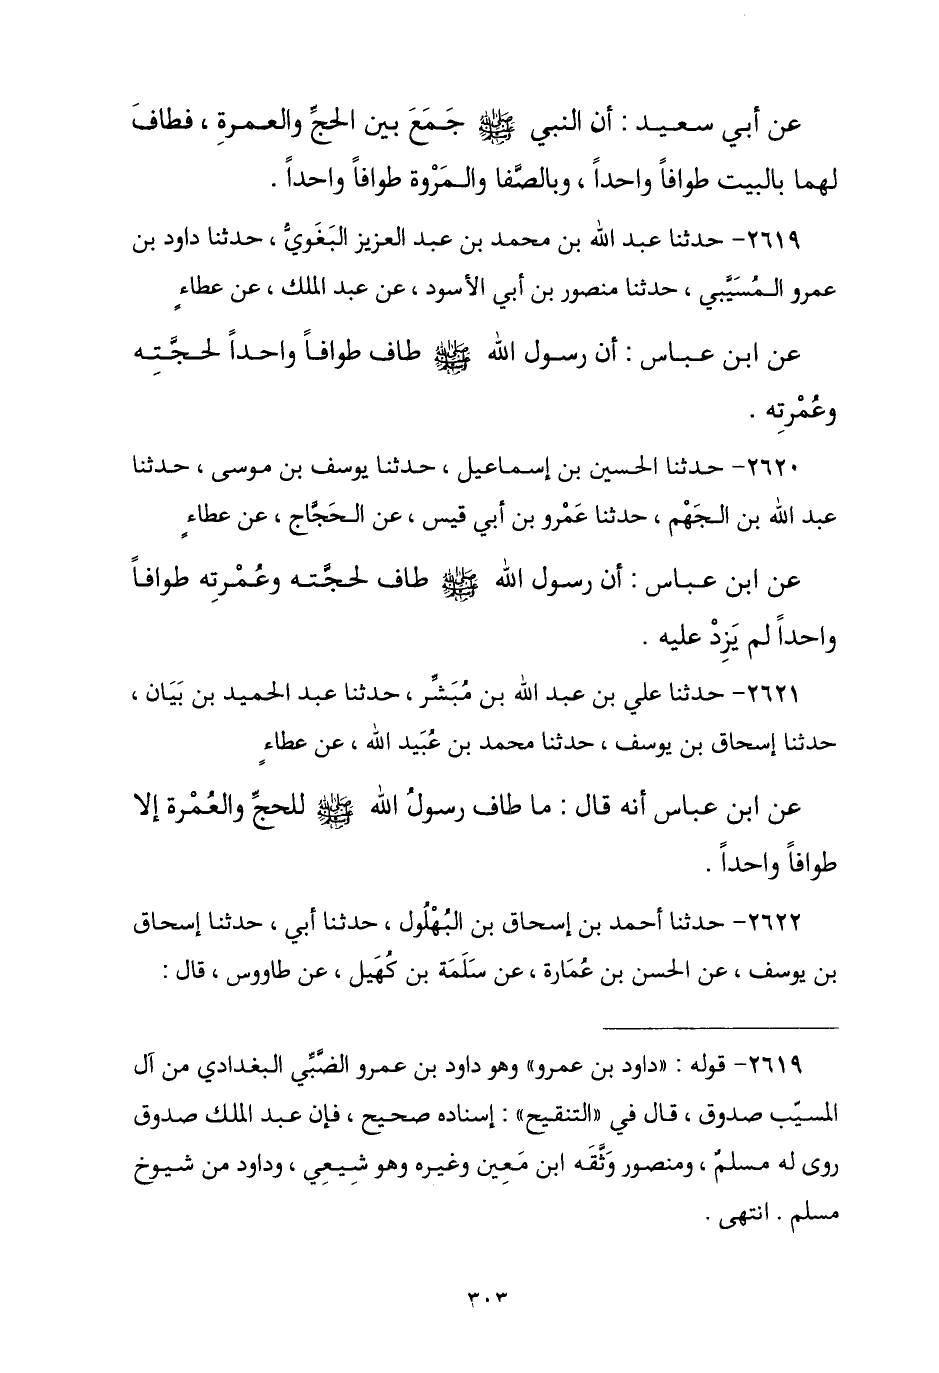 عن أبي سعيد : أن النبي ﷺ جَمَعَ بين الحجِّ والعمرةِ ، فطافَ
لهما بالبيت طوافاً واحداً ، وبالصَّفا والمَرْوة طوافاً واحداً .
٢٦١٩- حدثنا عبد الله بن محمد بن عبد العزيز البَغَويُّ ، حدثنا داود بن
عمرو المُسَيَّبي ، حدثنا منصور بن أبي الأسود ، عن عبد الملك ، عن عطاءٍ
عن ابن عباس : أن رسول الله ﷺ طاف طوافاً واحداً لحجَّتِه
وعُمْرتِه .
٢٦٢٠- حدثنا الحسين بن إسماعيل ، حدثنا يوسف بن موسى ، حدثنا
عبد الله بن الجَهْم ، حدثنا عَمْرو بن أبي قيس ، عن الحَجَّاج ، عن عطاءٍ
عن ابن عباس : أن رسول الله ﷺ طاف لحجَّته وعُمْرتِه طوافاً
واحداً لم يَزِدْ عليه .
٢٦٢١- حدثنا علي بن عبد الله بن مُبَشِّر ، حدثنا عبد الحميد بن بَيَان ،
حدثنا إسحاق بن يوسف ، حدثنا محمد بن عُبَيد الله ، عن عطاءٍ
عن ابن عباس أنه قال : ما طاف رسولُ الله ﷺ للحجِّ والعُمْرة إلا
طوافاً واحداً .
٢٦٢٢- حدثنا أحمد بن إسحاق بن البُهْلُول ، حدثنا أبي ، حدثنا إسحاق
بن يوسف ، عن الحسن بن عُمَارة ، عن سَلَمَة بن كُهَيل ، عن طاووس ، قال :
٢٦١٩- قوله : «داود بن عمرو» وهو داود بن عمرو الضَّبِّي البغدادي من آل
المسيّب صدوق ، قال في «التنقيح» : إسناده صحيح ، فإن عبد الملك صدوق
روى له مسلمٌ ، ومنصور وَثَّقَه ابن مَعِين وغيره وهو شيعي ، وداود من شيوخ
مسلم . انتهى .
٣٠٣